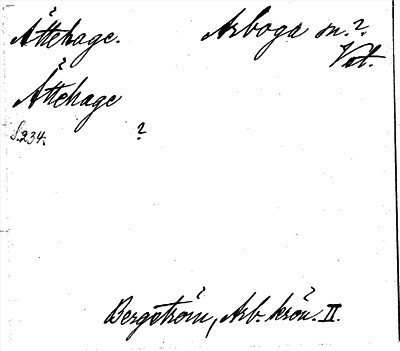 Åttehage. Arboga sn.?.
Vstl.
Åttehage
S. 234. ?
Bergström, Arb. krön. II.